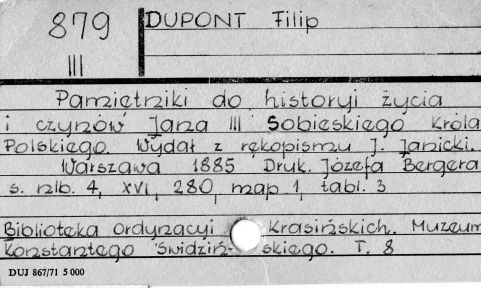 879
III
DUPONT Filip
Pamiętniki do historyi życia
i czynów Jana III Sobieskiego Króla
Polskiego. Wydał z rękopismu J. Janicki.
Warszawa 1885 Druk. Józefa Bergera
s. nlb. 4, XVI, 280, map 1, tabl. 3
Biblioteka Ordynacyi Krasińskich. Muzeum
Konstantego Świdziń- skiego. T. 8
DUJ 867/71 5 000